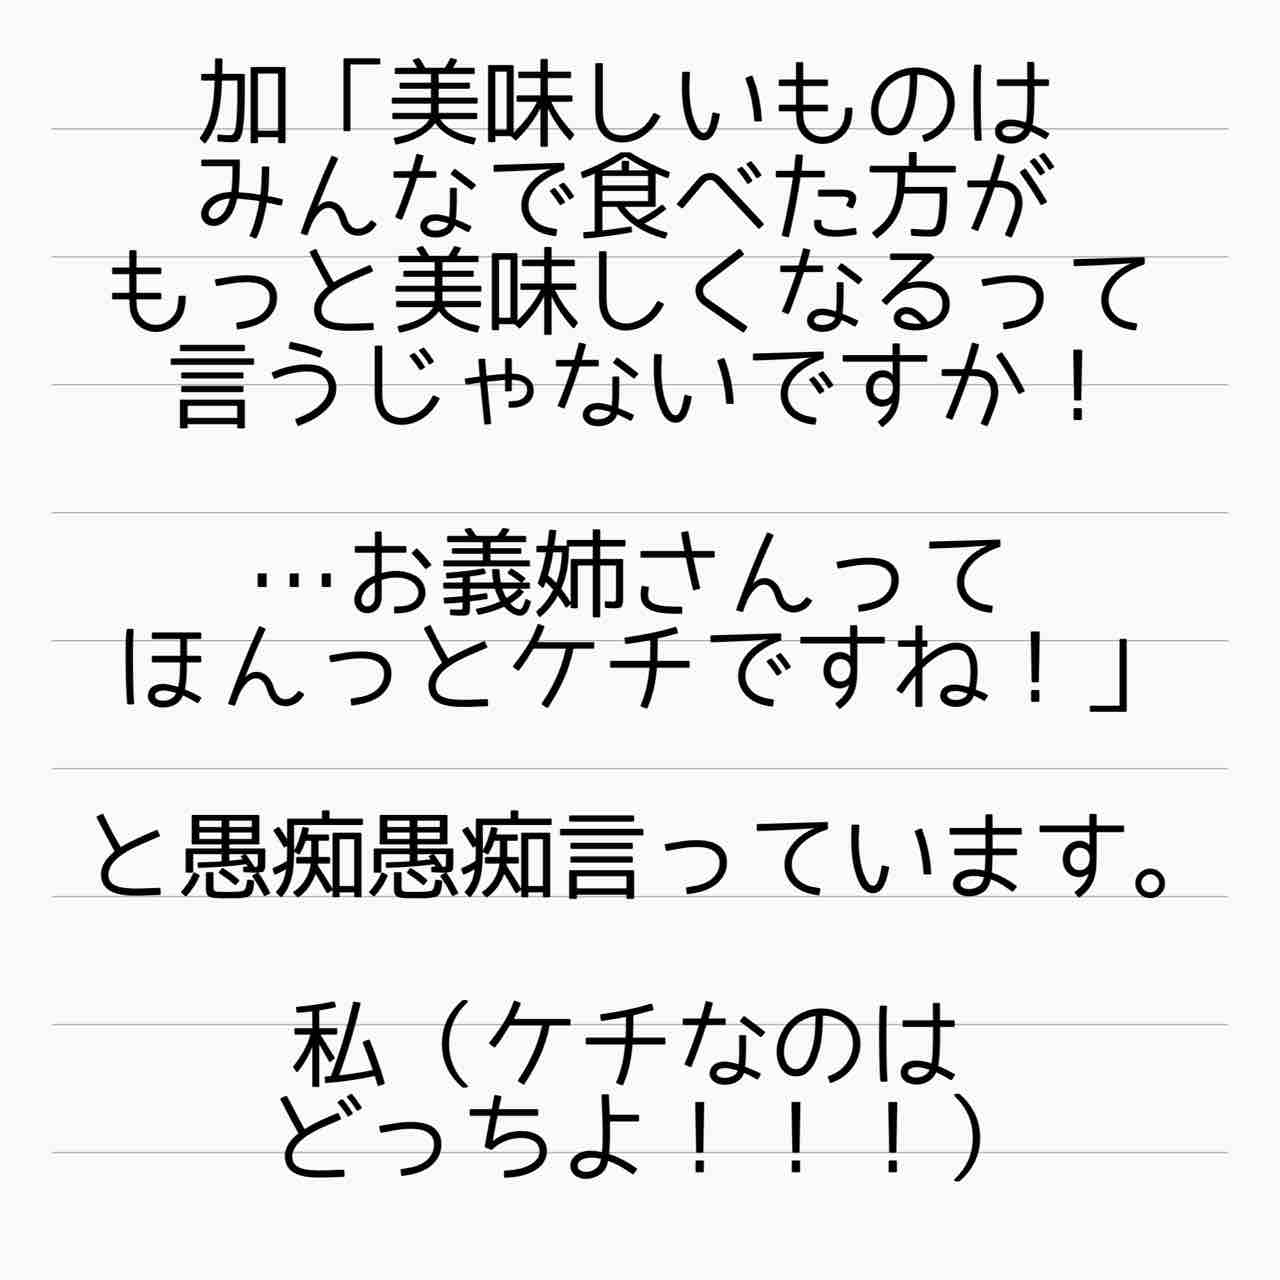 加「美味しいものは
みんなで食べた方が
もっと美味しくなるって
言うじゃないですか！
…お義姉さんって
ほんっとケチですね！」
と愚痴愚痴言っています。
私（ケチなのは
どっちよ！！！）